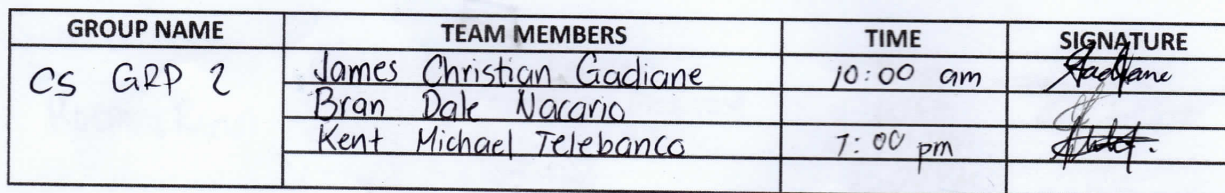 GROUP NAME TEAM MEMBERS TIME SIGNATURE
CS GRP 2 James Christian Gadiane 10:00 am Gadiane
Bran Dale Nacario
Kent Michael Telebanco 7:00 pm